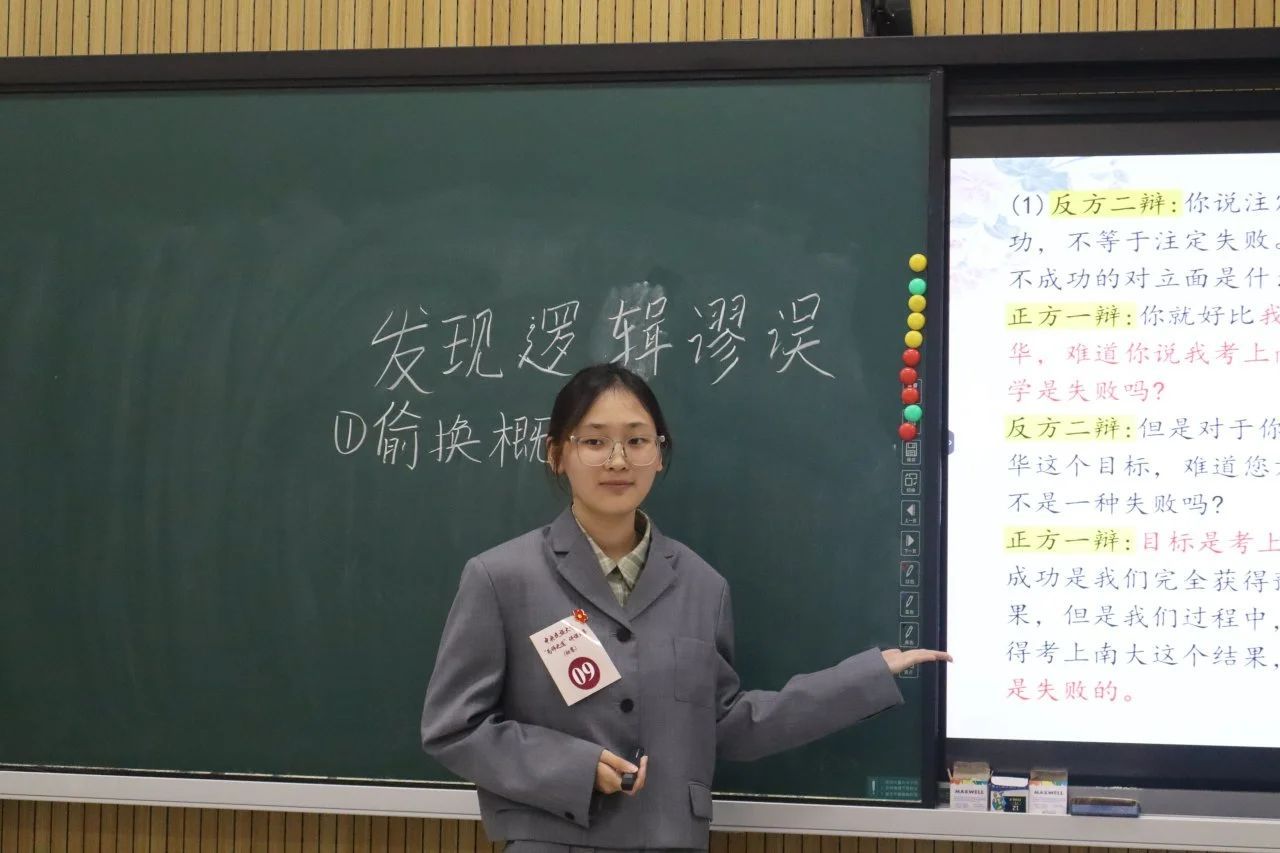 发现逻辑谬误
①偷换概
09
(1)反方二辩:你说注定
功，不等于注定失败。
不成功的对立面是什
正方一辩:你就好比我
华，难道你说我考上南
学是失败吗?
反方二辩:但是对于你
华这个目标，难道您
不是一种失败吗?
正方一辩:目标是考上
成功是我们完全获得
果，但是我们过程中，
得考上南大这个结果，
是失败的。
MAXWELL
MAXWELL